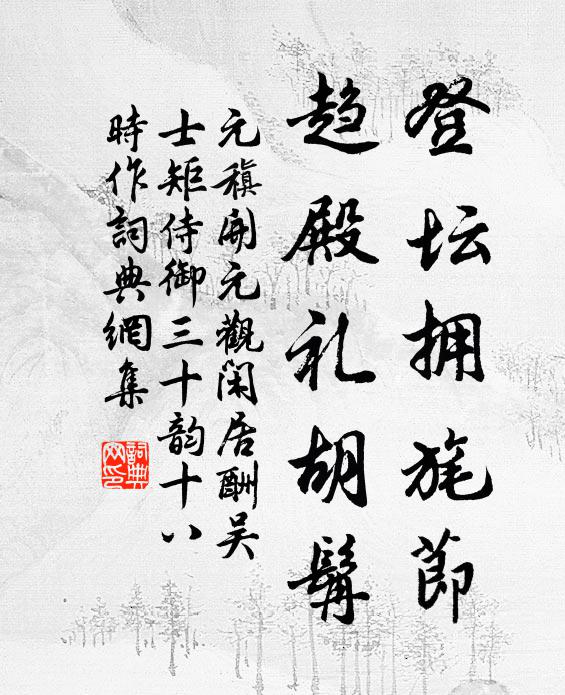 登坛拥旄节
趋殿礼胡髯
元稹開元觀閑居酬吴
士矩侍御三十韵十八
時作詞典網集
詞典
网印